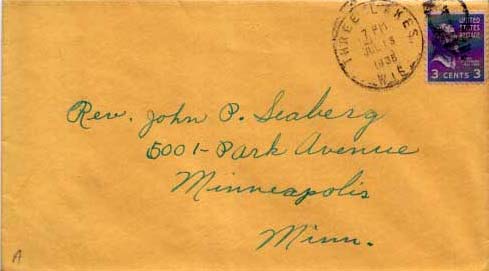 THREE LAKES,
2 PM
JUL 15
1938
WIS.
UNITED
STATES
POSTAGE
3 CENTS 3
Rev. John P. Seaberg
5001-Park Avenue
Minneapolis
Minn.
A